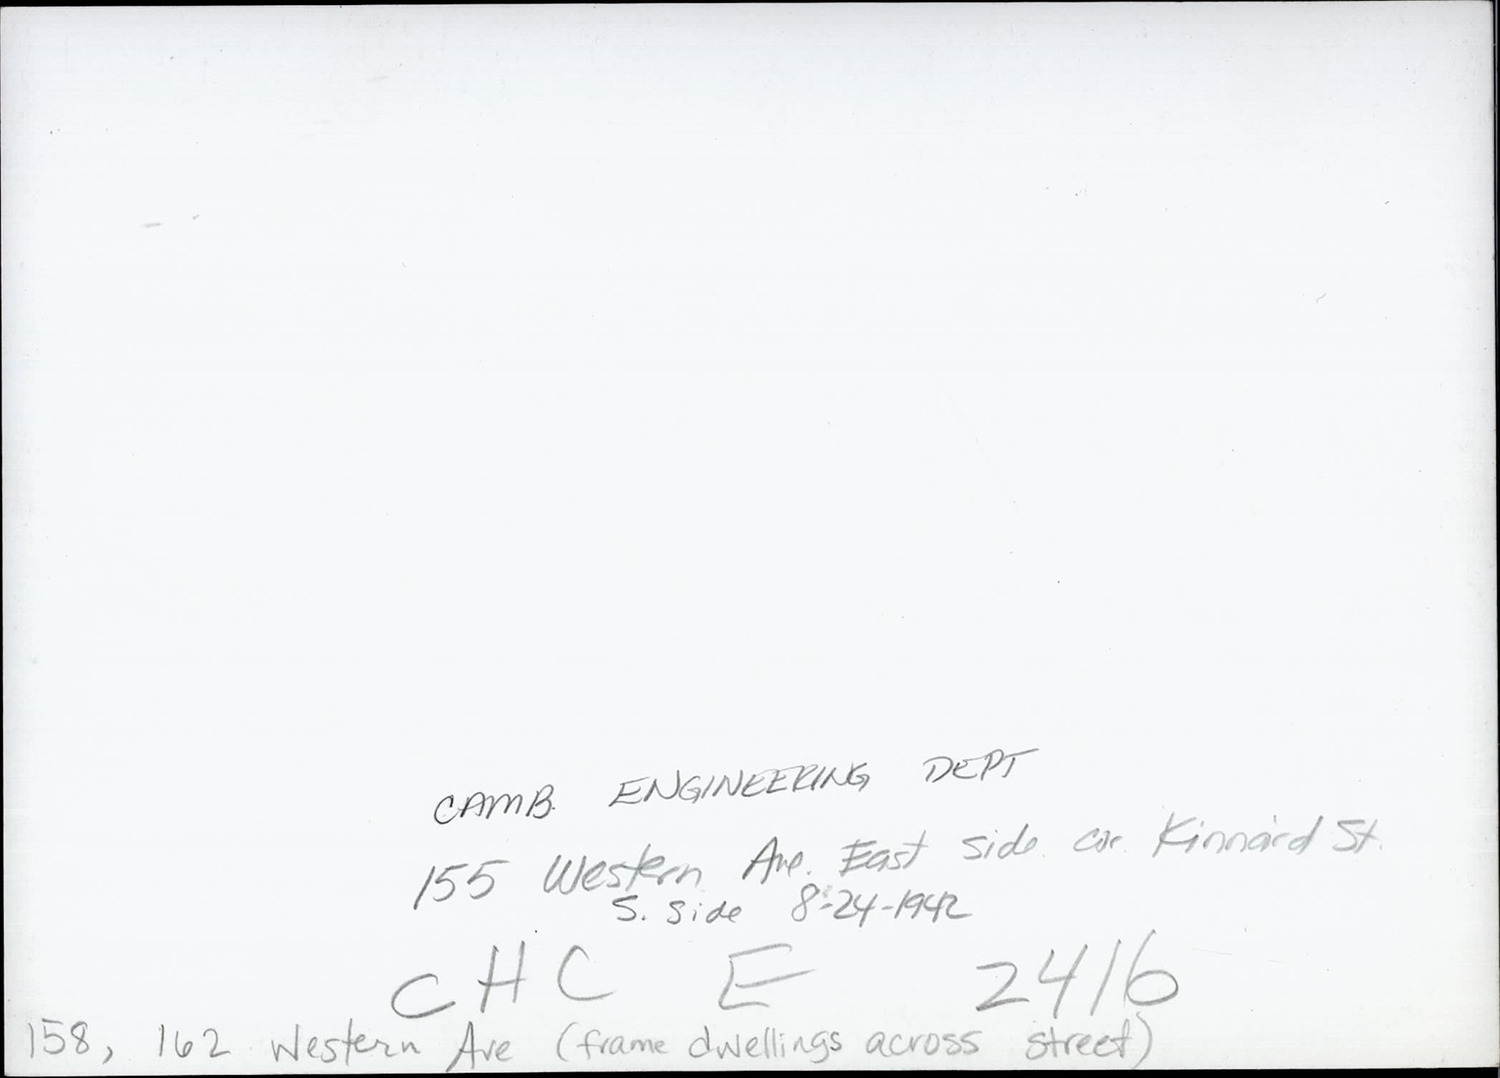 CAMB. ENGINEERING DEPT
155 Western Ave. East side cor. Kinnaird St.
S. Side 8-24-1942
CHC E 2416
158, 162 Western Ave (frame dwellings across street)